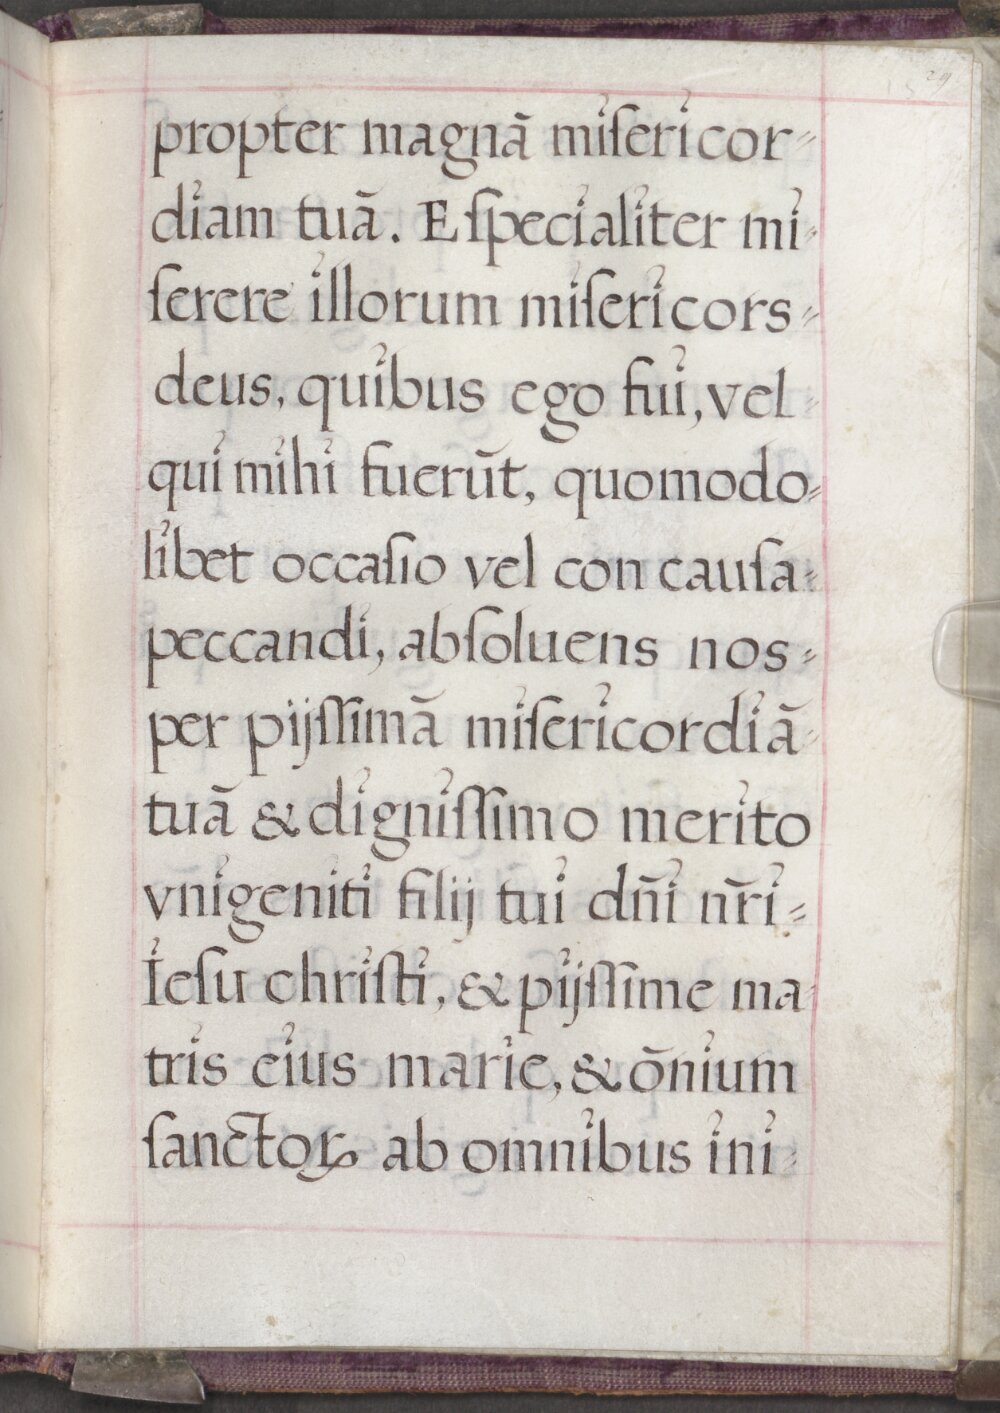 29
propter magnā miſericor⸗
diam tuā. Eſpecialiter mi⸗
ſerere illorum miſericors⸗
deus, quibus ego fui, vel⸗
qui mihi fuerūt, quomodo⸗
libet occaſio vel con cauſa⸗
peccandi, abſoluens nos⸗
per pijſſimā miſericordiā⸗
tuā & digniſſimo merito
vnigeniti filij tui dn̄i nr̄i⸗
Ieſu chriſti, & pijſſime ma⸗
tris eius marie, & ōnium
ſanctoꝝ ab omnibus ini⸗